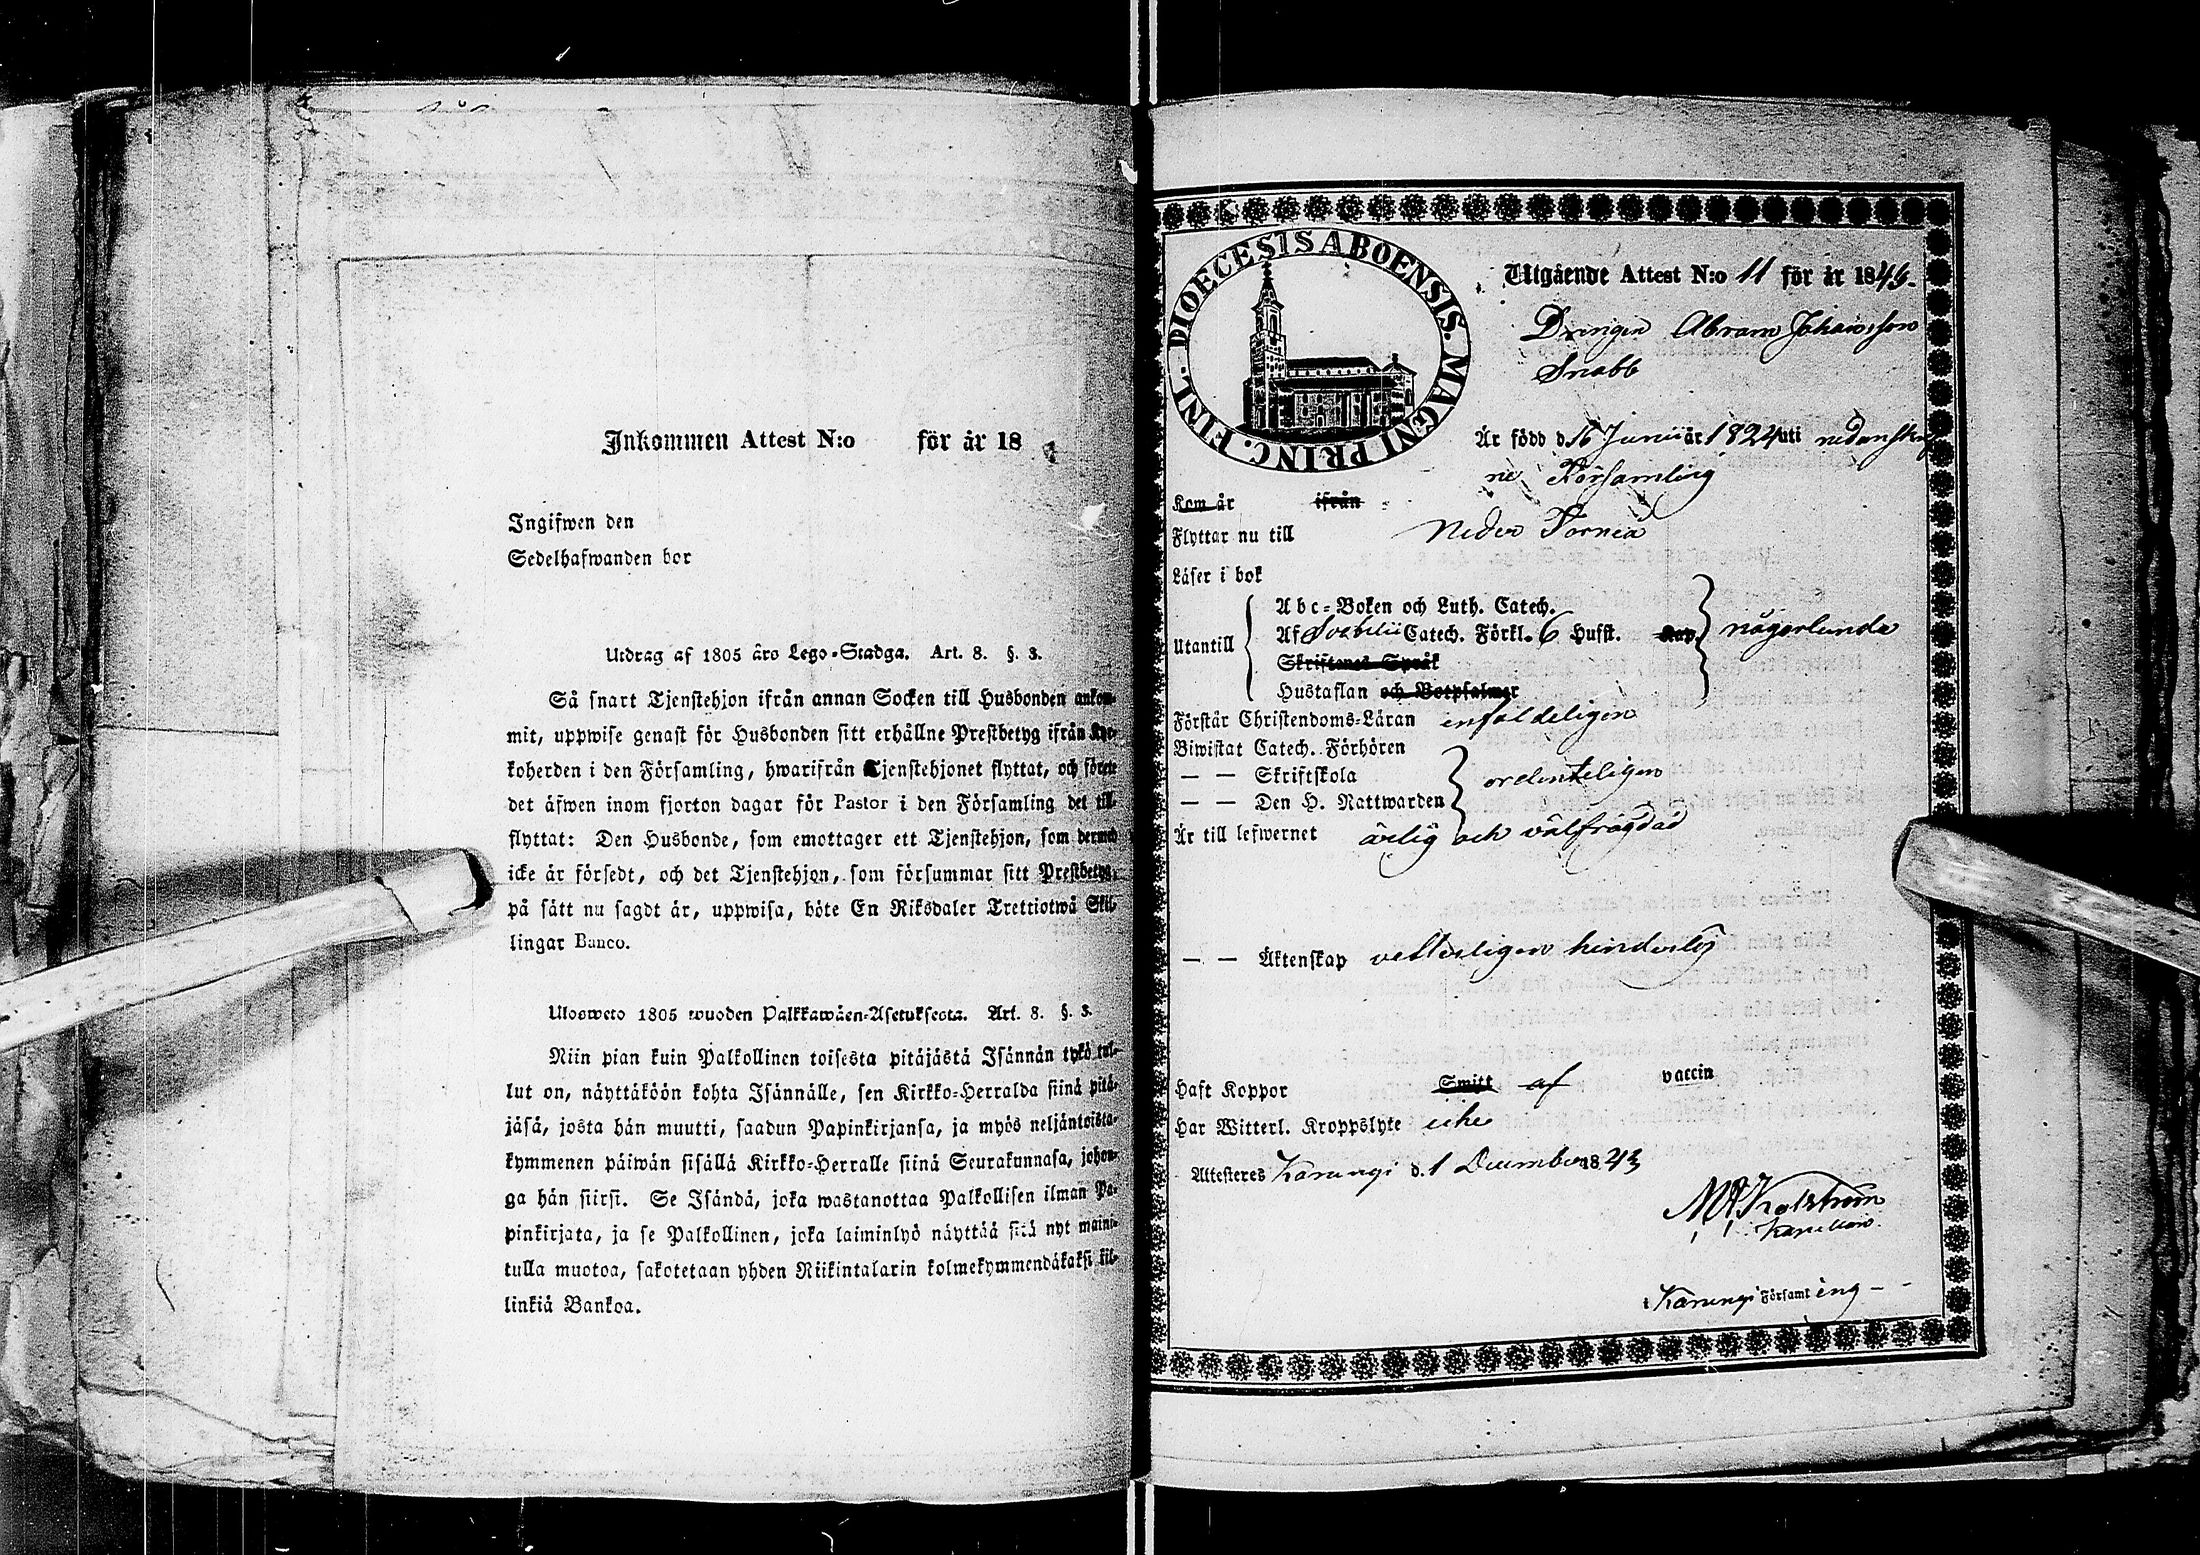 Inkommen Attest N:o för år 18
Ingifwen den
Sedelhafwanden bor
Utdrag af 1805 års Lego-Stadga. Art. 8. §. 3.
Så snart Tjenstehjon ifrån annan Socken till Husbonden ankom-
mit, uppwise genast för Husbonden sitt erhållne Prestbetyg ifrån Kyr-
koherden i den Församling, hwarifrån Tjenstehjonet flyttat, och förete
det äfwen inom fjorton dagar för Pastor i den Församling det till-
flyttat: Den Husbonde, som emottager ett Tjenstehjon, som dermed
icke är försedt, och det Tjenstehjon, som försummar sitt Prestbetyg,
på sätt nu sagdt är, uppwisa, böte En Riksdaler Trettiotwå Skil-
lingar Banco.
Ulosweto 1805 wuoden Palkkawäen-Asetuksesta. Art. 8. §. 3.
Niin pian kuin Palkollinen toisesta pitäjästä Isännän tykö tul-
lut on, näyttäköön kohta Isännälle, sen Kirkko-Herralda siinä pitä-
jäsä, josta hän muutti, saadun Papinkirjansa, ja myös neljäntoista-
kymmenen päiwän sisällä Kirkko-Herralle siinä Seurakunnasa, johon-
ga hän siirsi. Se Isändä, joka wastanottaa Palkollisen ilman Pa-
pinkirjata, ja se Palkollinen, joka laiminlyö näyttää sitä nyt maini-
tulla muotoa, sakotetaan yhden Riikintalarin kolmekymmendäkaksi kil-
linkiä Bankoa.
DIOECESIS ABOENSIS. MAGNI PRINC. FINL.
Utgående Attest N:o 11 för år 1843.
Drengen Abram Johansson
Snabb
Är född d. 16 Junii år 1824 uti nedanskrif
ne Församling
Kom år ifrån
Flyttar nu till Neder Torneå
Läser i bok
Utantill
Abc-Boken och Luth. Catech.
Af Svebilii Catech. Förkl. 6 Hufst. Kap. någorlunda
Skriftenes Språk
Hustaflan och Botpsalmer
Förstår Christendoms-Läran enfaldeligen
Biwistat Catech. Förhören
— — Skriftskola ordenteligen
— — Den H. Nattwarden
Är till lefwernet ärlig och välfrägdad
— — Äktenskap vetterligen hinderlös
Haft Koppor Smitt af vaccin
Har Witterl. Kroppslyte icke
Attesteras Karungi d. 1 December 1843
Kapellan.
i Karungi Församl ing —